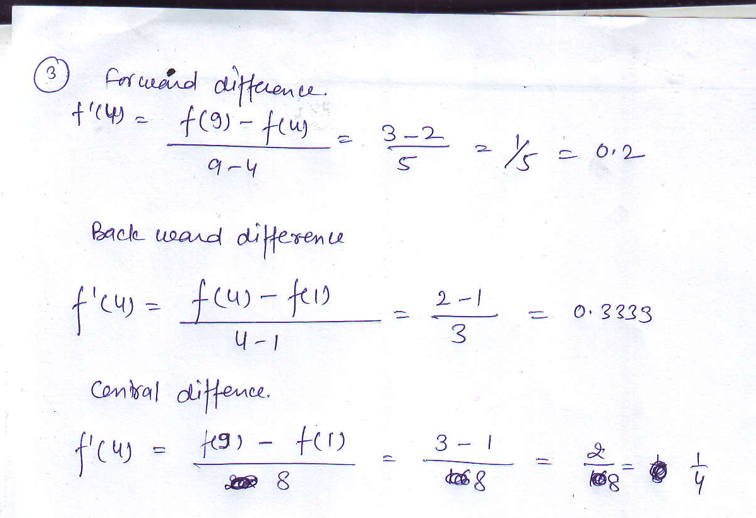 3 Forward difference.
f'(4) = f(9) - f(4) / 9-4 = 3-2 / 5 = 1/5 = 0.2
Back ward difference
f'(4) = f(4) - f(1) / 4-1 = 2-1 / 3 = 0.3333
Central diffence.
f'(4) = f(9) - f(1) / 8 = 3-1 / 8 = 2 / 8 = 1/4